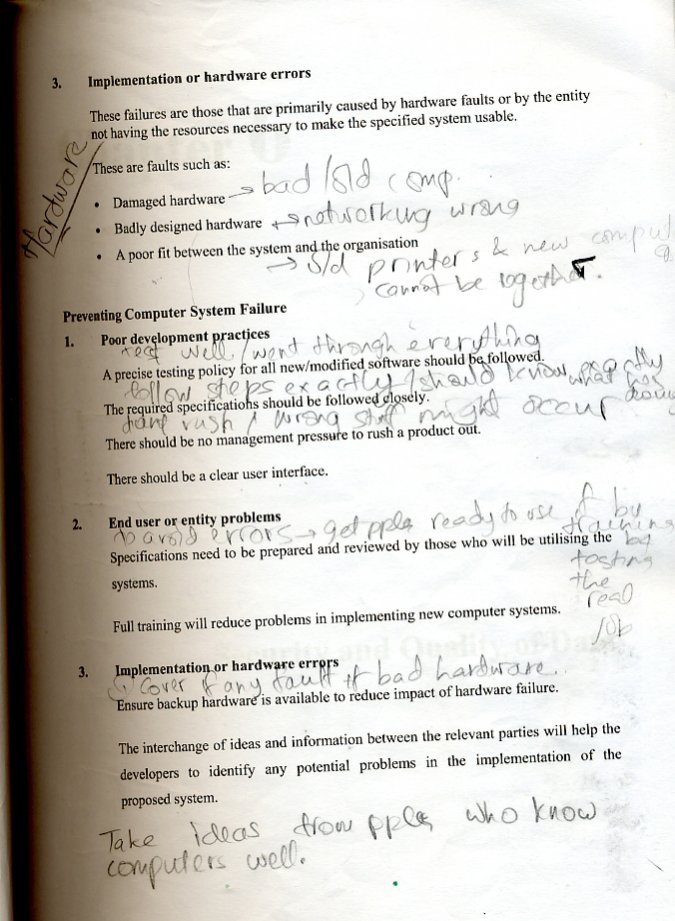 3. Implementation or hardware errors
These failures are those that are primarily caused by hardware faults or by the entity
not having the resources necessary to make the specified system usable.
Hardware
These are faults such as:
• Damaged hardware → bad / old comp.
• Badly designed hardware ↔ networking wrong
• A poor fit between the system and the organisation
→ old printers & new comput
cannot be together.
Preventing Computer System Failure
1. Poor development practices
test well / went through everything
A precise testing policy for all new/modified software should be followed.
follow steps exactly / should know exactly
what
The required specifications should be followed closely.
rush / wrong stuff might occur
There should be no management pressure to rush a product out.
There should be a clear user interface.
2. End user or entity problems
to avoid errors → get pple ready to use it by
training
Specifications need to be prepared and reviewed by those who will be utilising the
systems.
testing
the
real
job
Full training will reduce problems in implementing new computer systems.
3. Implementation or hardware errors
cover if any fault if bad hardware.
Ensure backup hardware is available to reduce impact of hardware failure.
The interchange of ideas and information between the relevant parties will help the
developers to identify any potential problems in the implementation of the
proposed system.
Take ideas from pple who know
computers well.